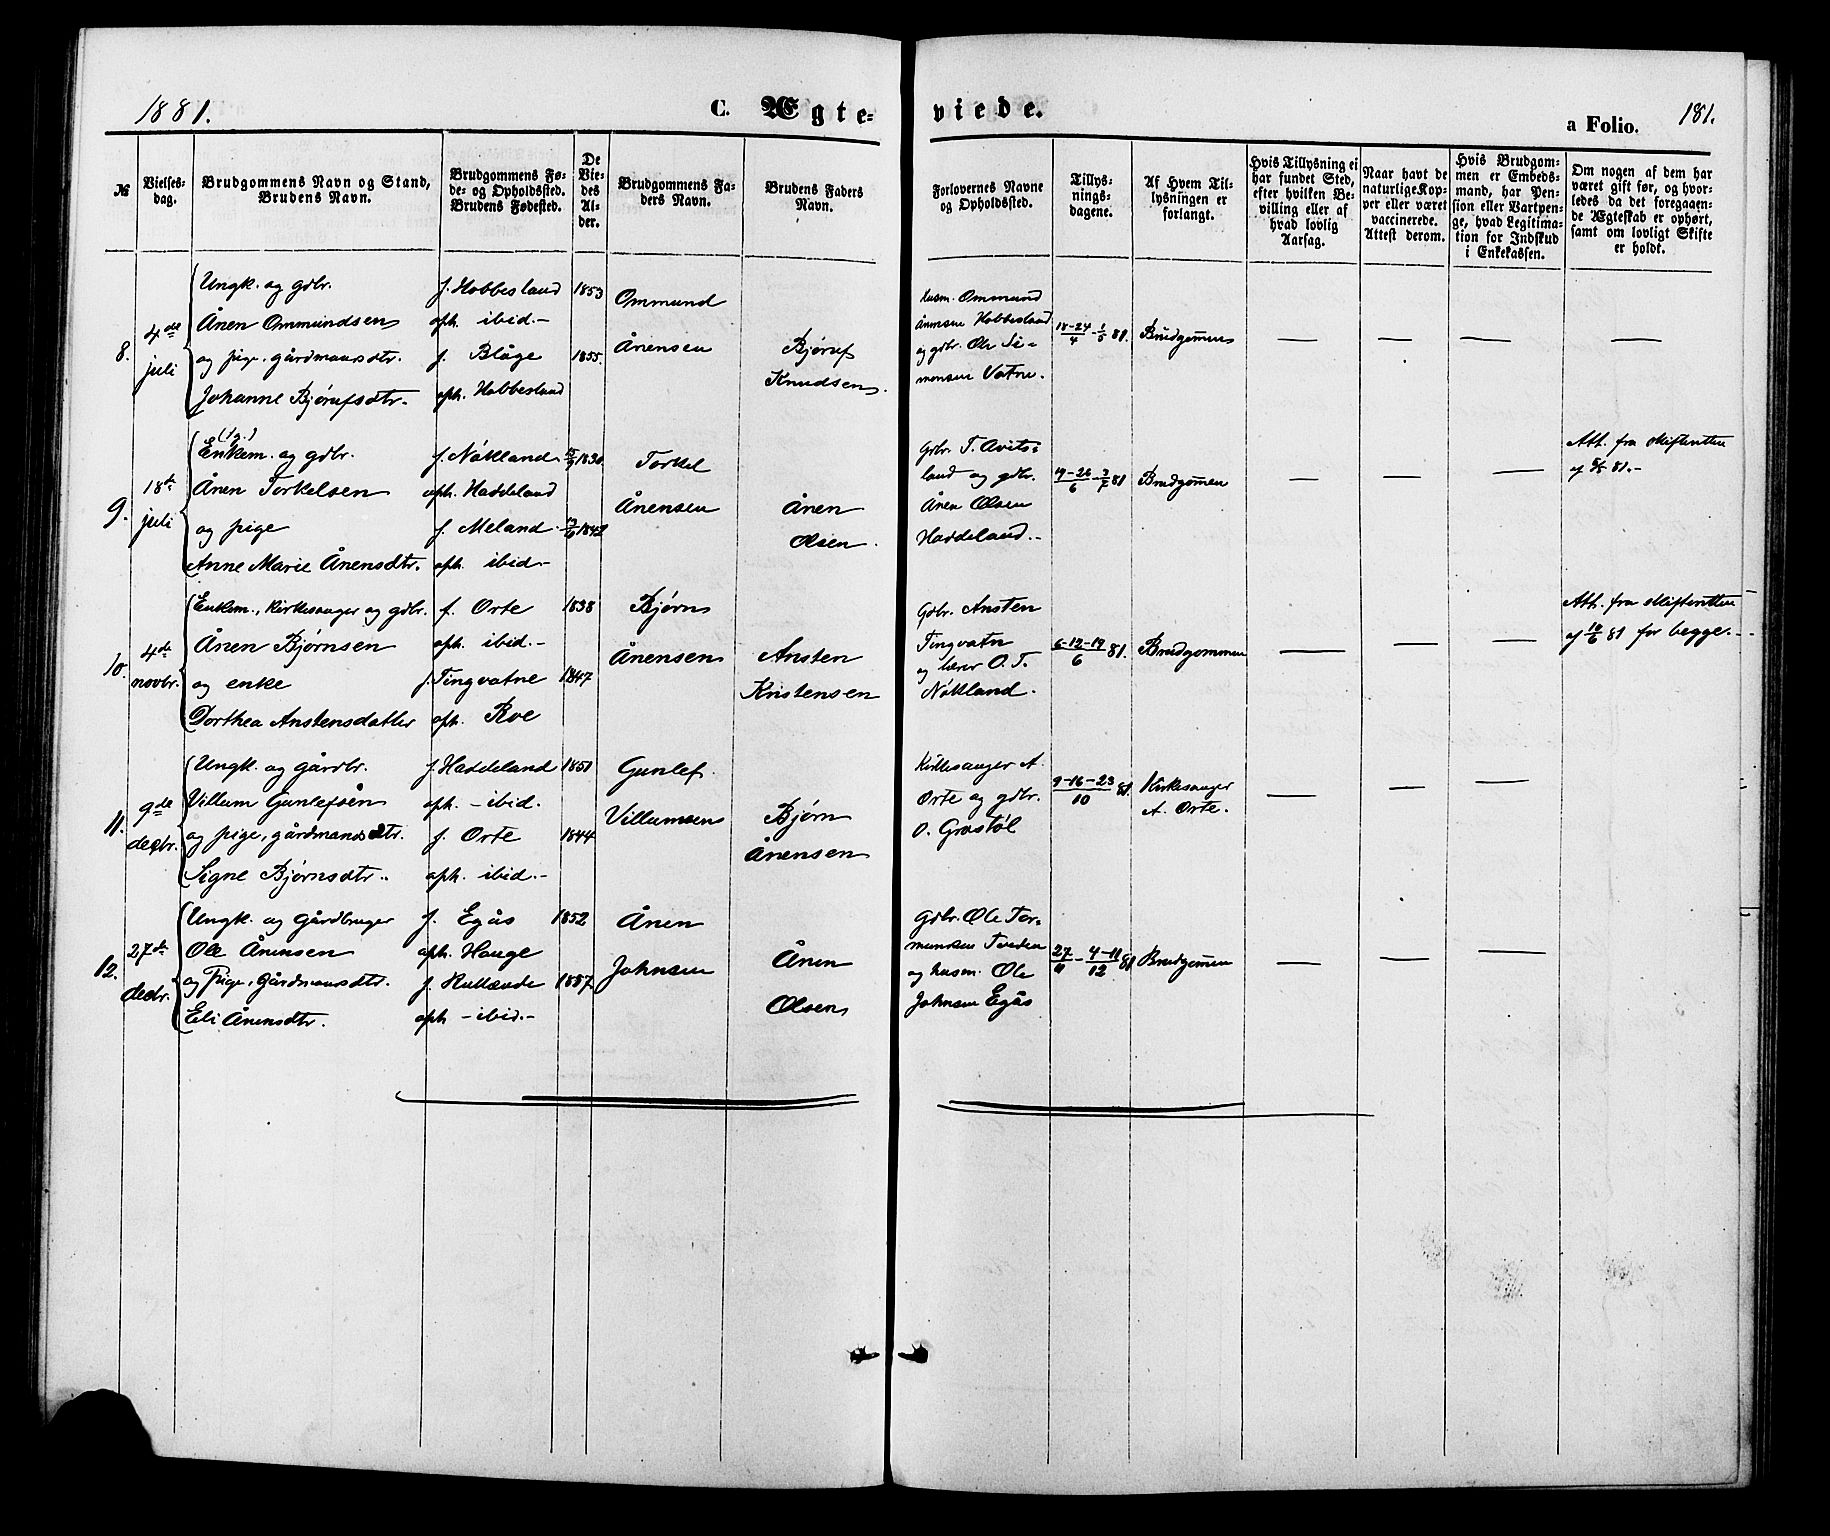 1881.
C. Ægte-
viede.
a Folio.
181.
№
Vielses-
dag.
Brudgommens Navn og Stand,
Brudens Navn.
Brudgommens Fø-
de- og Opholdssted.
Brudens Fødested.
De
Vie-
des
Al-
der.
Brudgommens Fa-
ders Navn.
Brudens Faders
Navn.
Forlovernes Navne
og Opholdssted.
Tillys-
nings-
dagene.
Af Hvem Til-
lysningen er
forlangt.
Hvis Tillysning ei
har fundet Sted,
efter hvilken Be-
villing eller af
hvad lovlig
Aarsag.
Naar havt de
naturlige Kop-
per eller været
vaccinerede.
Attest derom.
Hvis Brudgom-
men er Embeds-
mand, har Pen-
sion eller Vartpen-
ge, hvad Legitima-
tion for Indskud
i Enkekassen.
Om nogen af dem har
været gift før, og hvor-
ledes da det foregaaen-
de Ægteskab er ophørt,
samt om lovligt Skifte
er holdt.
8.
4de
juli
Ungk. og gdbr.
Ånen Ommundsen
og pige, gårdmansdtr.
Johanne Bjørufsdtr.
f. Hobbesland
oph. ibid.-
f. Blåge
oph. Hobbesland
1853
1855.
Ommund
Ånensen
Bjøruf
Knudsen.
husm. Ommund
Ånensen Hobbesland
og gdbr. Ole Si-
monsen Vatne.
18-24/4 - 1/5 81.
Brudgommen
— — — —
9.
18de
juli
(1g.)
Enkem. og gdbr.
Ånen Torkelsen
og pige
Anne Marie Ånensdtr.
f. Nökland
oph. Haddeland
f. Meland
oph. ibid.-
1830
1842
Torkel
Ånensen
Ånen
Olsen.
Gdbr. T. Avits-
land og gdbr.
Ånen Olsen
Haddeland.-
19-26/6 - 3/7 81
Brudgommen
— — —
Att. fra skifteretten
af 81.-
10.
4de
novbr.
Enkem., kirkesanger og gdbr.
Ånen Bjørnsen
og enke
Dorthea Anstensdatter
f. Orte
oph. ibid.-
f. Tingvatne
oph. Roe
1838
1847
Bjørn
Ånensen
Ansten
Kristensen
Gdbr. Ansten
Tingvatn
og lærer O. T.
Nökland.
6-12-19/6 81.
Brudgommen
— — —
Att. fra skifteretten
af 81 for begge.-
11.
9de
decbr.
Ungk. og gårdbr.
Villum Gunlefsen
og pige, gårdmandsdtr.
Signe Bjørnsdtr.
f. Haddeland
oph. - ibid.
f. Orte
oph. ibid.-
1851
1844
Gunlef
Villumsen
Bjørn
Ånensen
Kirkesanger A.
Orte og gdbr.
O. Grøstöl
9-16-23/10 81.
Kirkesanger
A. Orte.
— — —
12.
27de
decbr.
Ungk. og Gårdbruger
Ole Ånensen
og Pige, Gårdmansdtr.
Eli Ånensdtr.
f. Egås
oph. Hauge
f.
oph - ibid.-
1852
1857
Ånen
Johnsen
Ånen
Olsen
Gdbr. Ole Tor-
mundsen
og husm. Ole
Johnsen Egås
27/11 - 4-11/12 81
Brudgommen
— — —